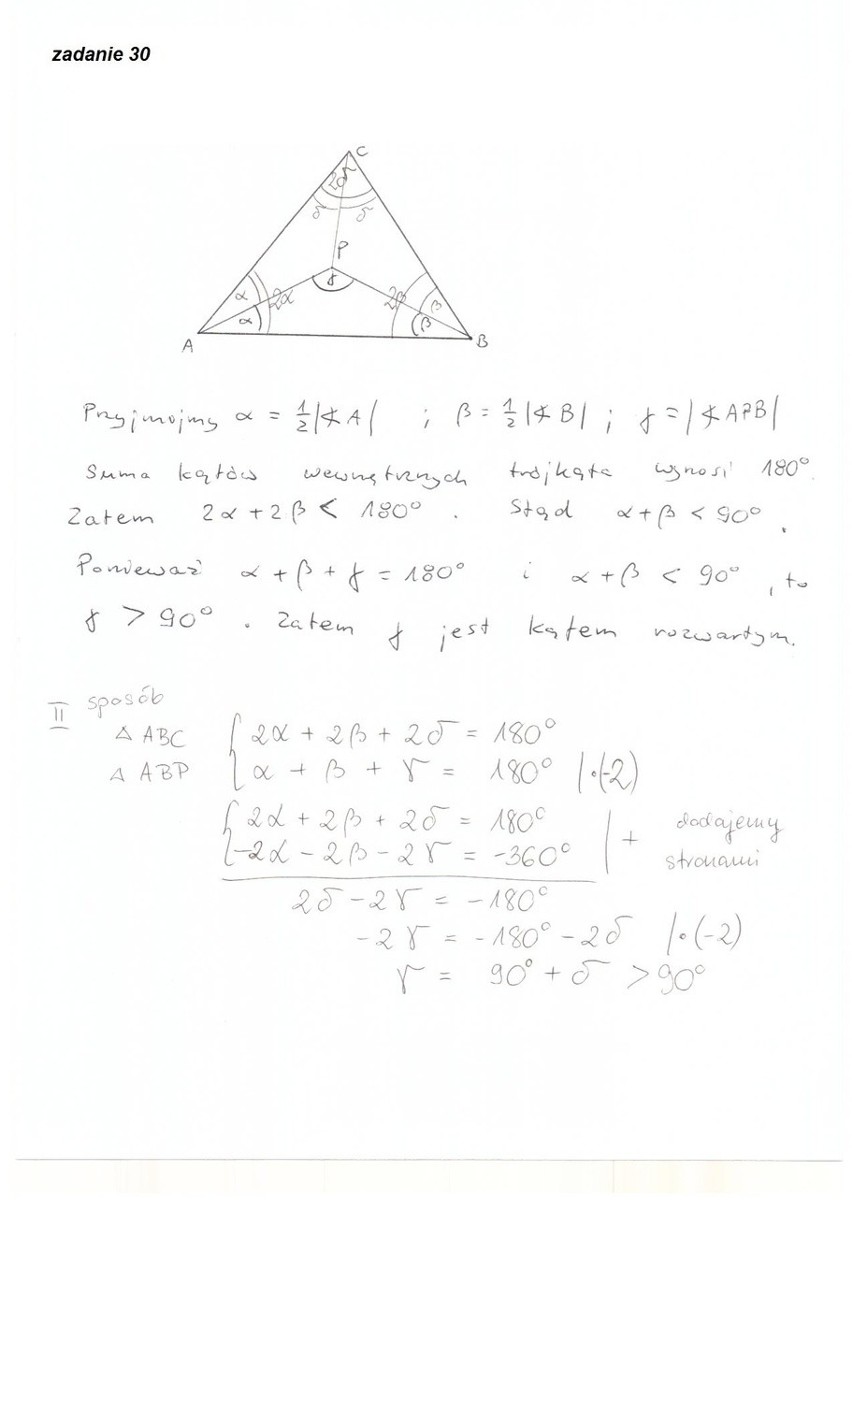 zadanie 30
C
2δ
δ δ
P
γ
α 2α 2β β
α β
A B
Przyjmijmy α = 1/2|∢A| ; β = 1/2|∢B| ; γ = |∢APB|
Suma kątów wewnętrznych trójkąta wynosi 180°.
Zatem 2α + 2β < 180°. Stąd α + β < 90°.
Ponieważ α + β + γ = 180° i α + β < 90°, to
γ > 90°. Zatem γ jest kątem rozwartym.
II sposób
△ ABC { 2α + 2β + 2δ = 180°
△ ABP { α + β + γ = 180° |·(-2)
{ 2α + 2β + 2δ = 180° | + dodajemy
{ -2α - 2β - 2γ = -360° | stronami
2δ - 2γ = -180°
-2γ = -180° - 2δ |·(-2)
γ = 90° + δ > 90°